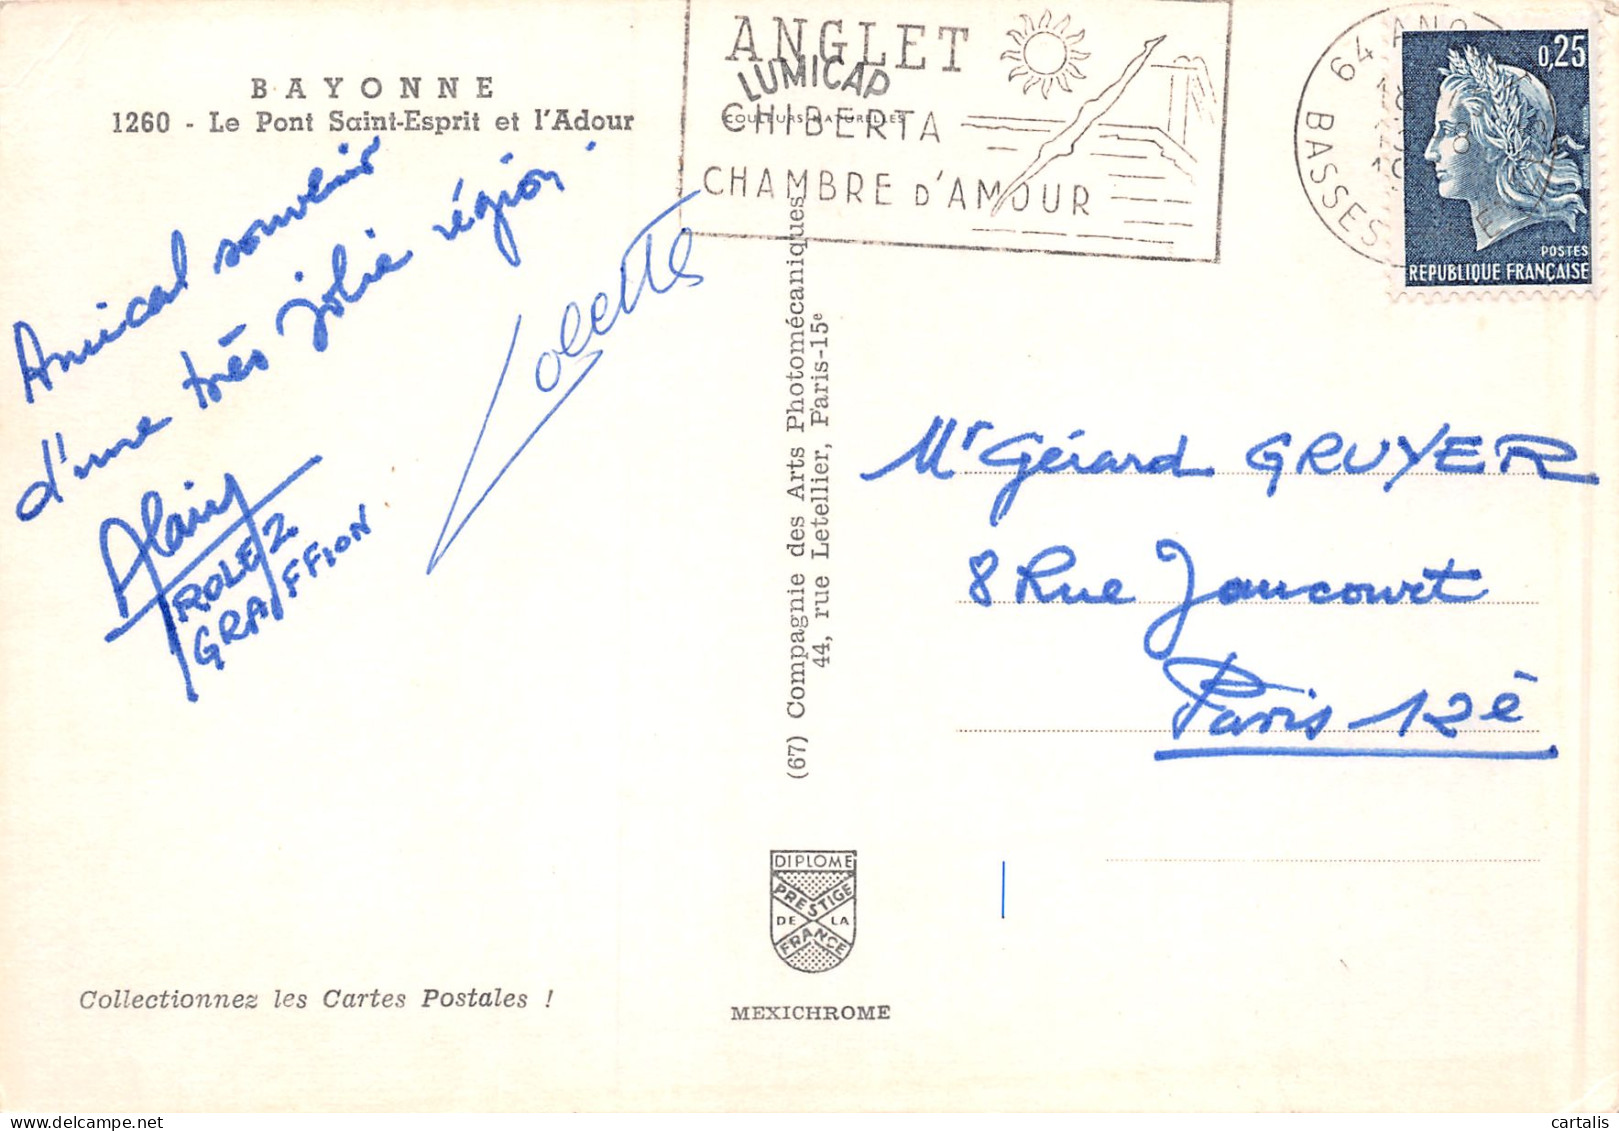 BAYONNE
1260 - Le Pont Saint-Esprit et l'Adour
Amical souvenir
d'une très jolie région.
Colette
Alain
ROLEZ
GRAFFION
Collectionnez les Cartes Postales !
ANGLET
LUMICAP
COULEURS NATURELLES
CHIBERTA
CHAMBRE D'AMOUR
(67) Compagnie des Arts Photomécaniques
44, rue Letellier, Paris-15e
DIPLOME
PRESTIGE
DE LA
FRANCE
MEXICHROME
64 ANG
18
BASSES
0,25
POSTES
REPUBLIQUE FRANÇAISE
Mr Gérard GRUYER
8 Rue Jaucourt
Paris 12è
cartalis | delcampe.net